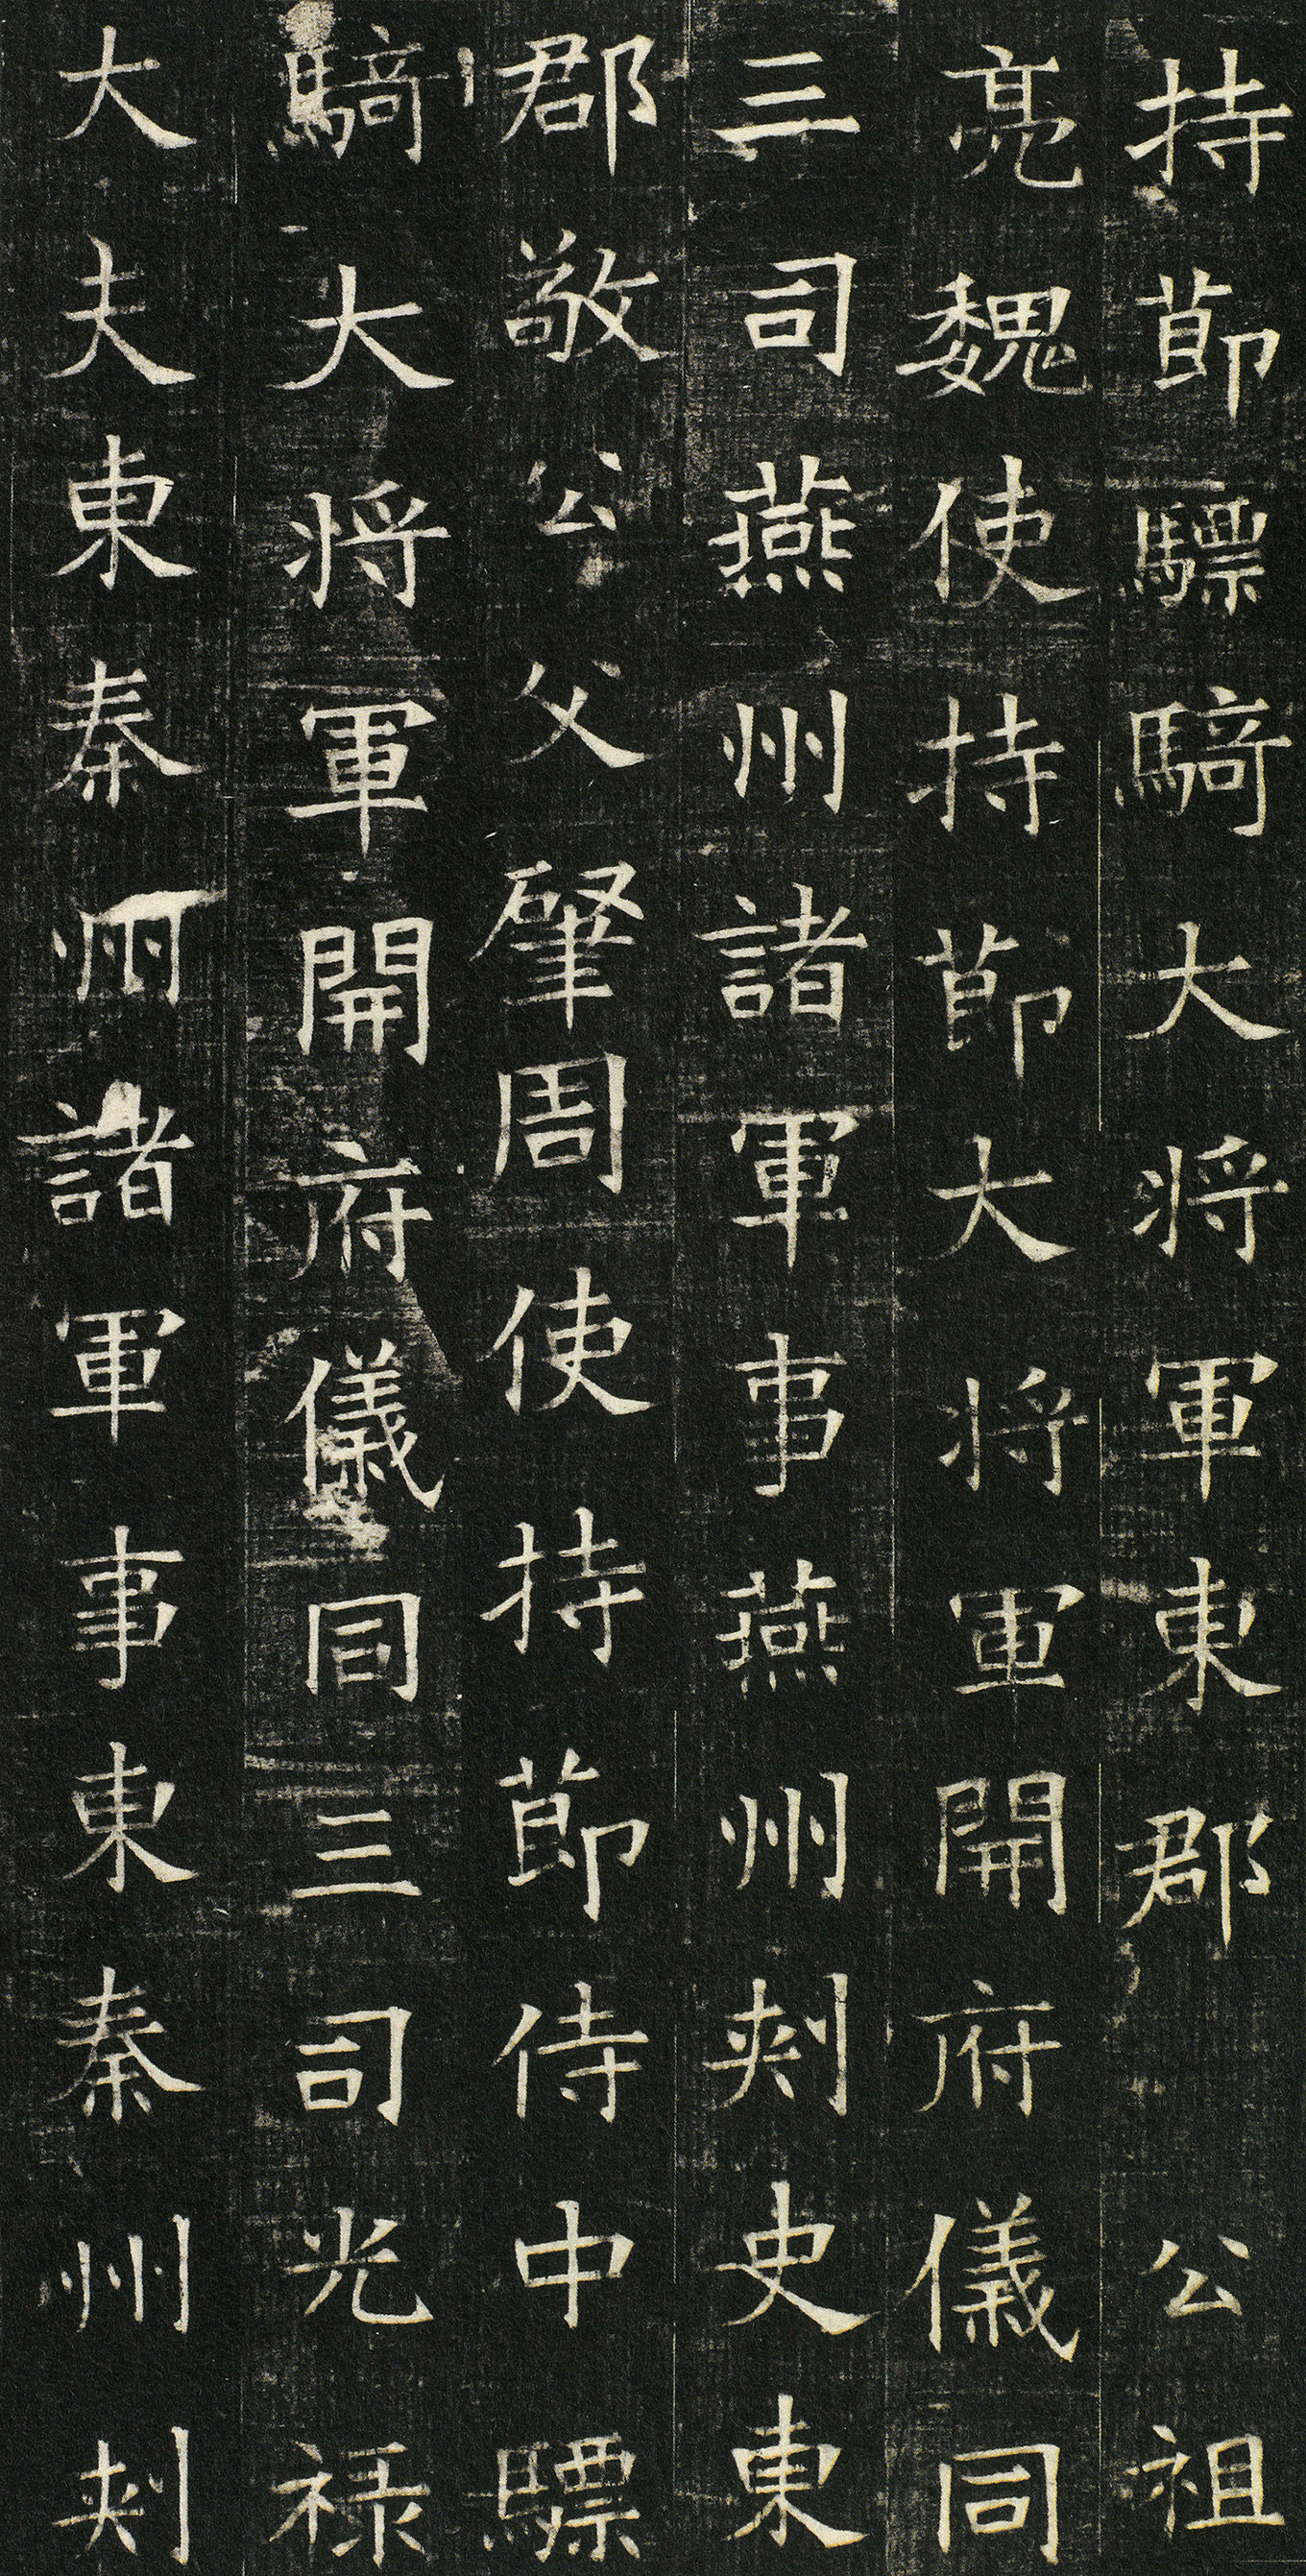 持節驃騎大将軍東郡公祖
亮魏使持節大将軍開府儀同
三司燕州諸軍事燕州刺史東
郡敬公父肇周使持節侍中驃
騎大将軍開府儀同三司光禄
大夫東秦州諸軍事東秦州刺